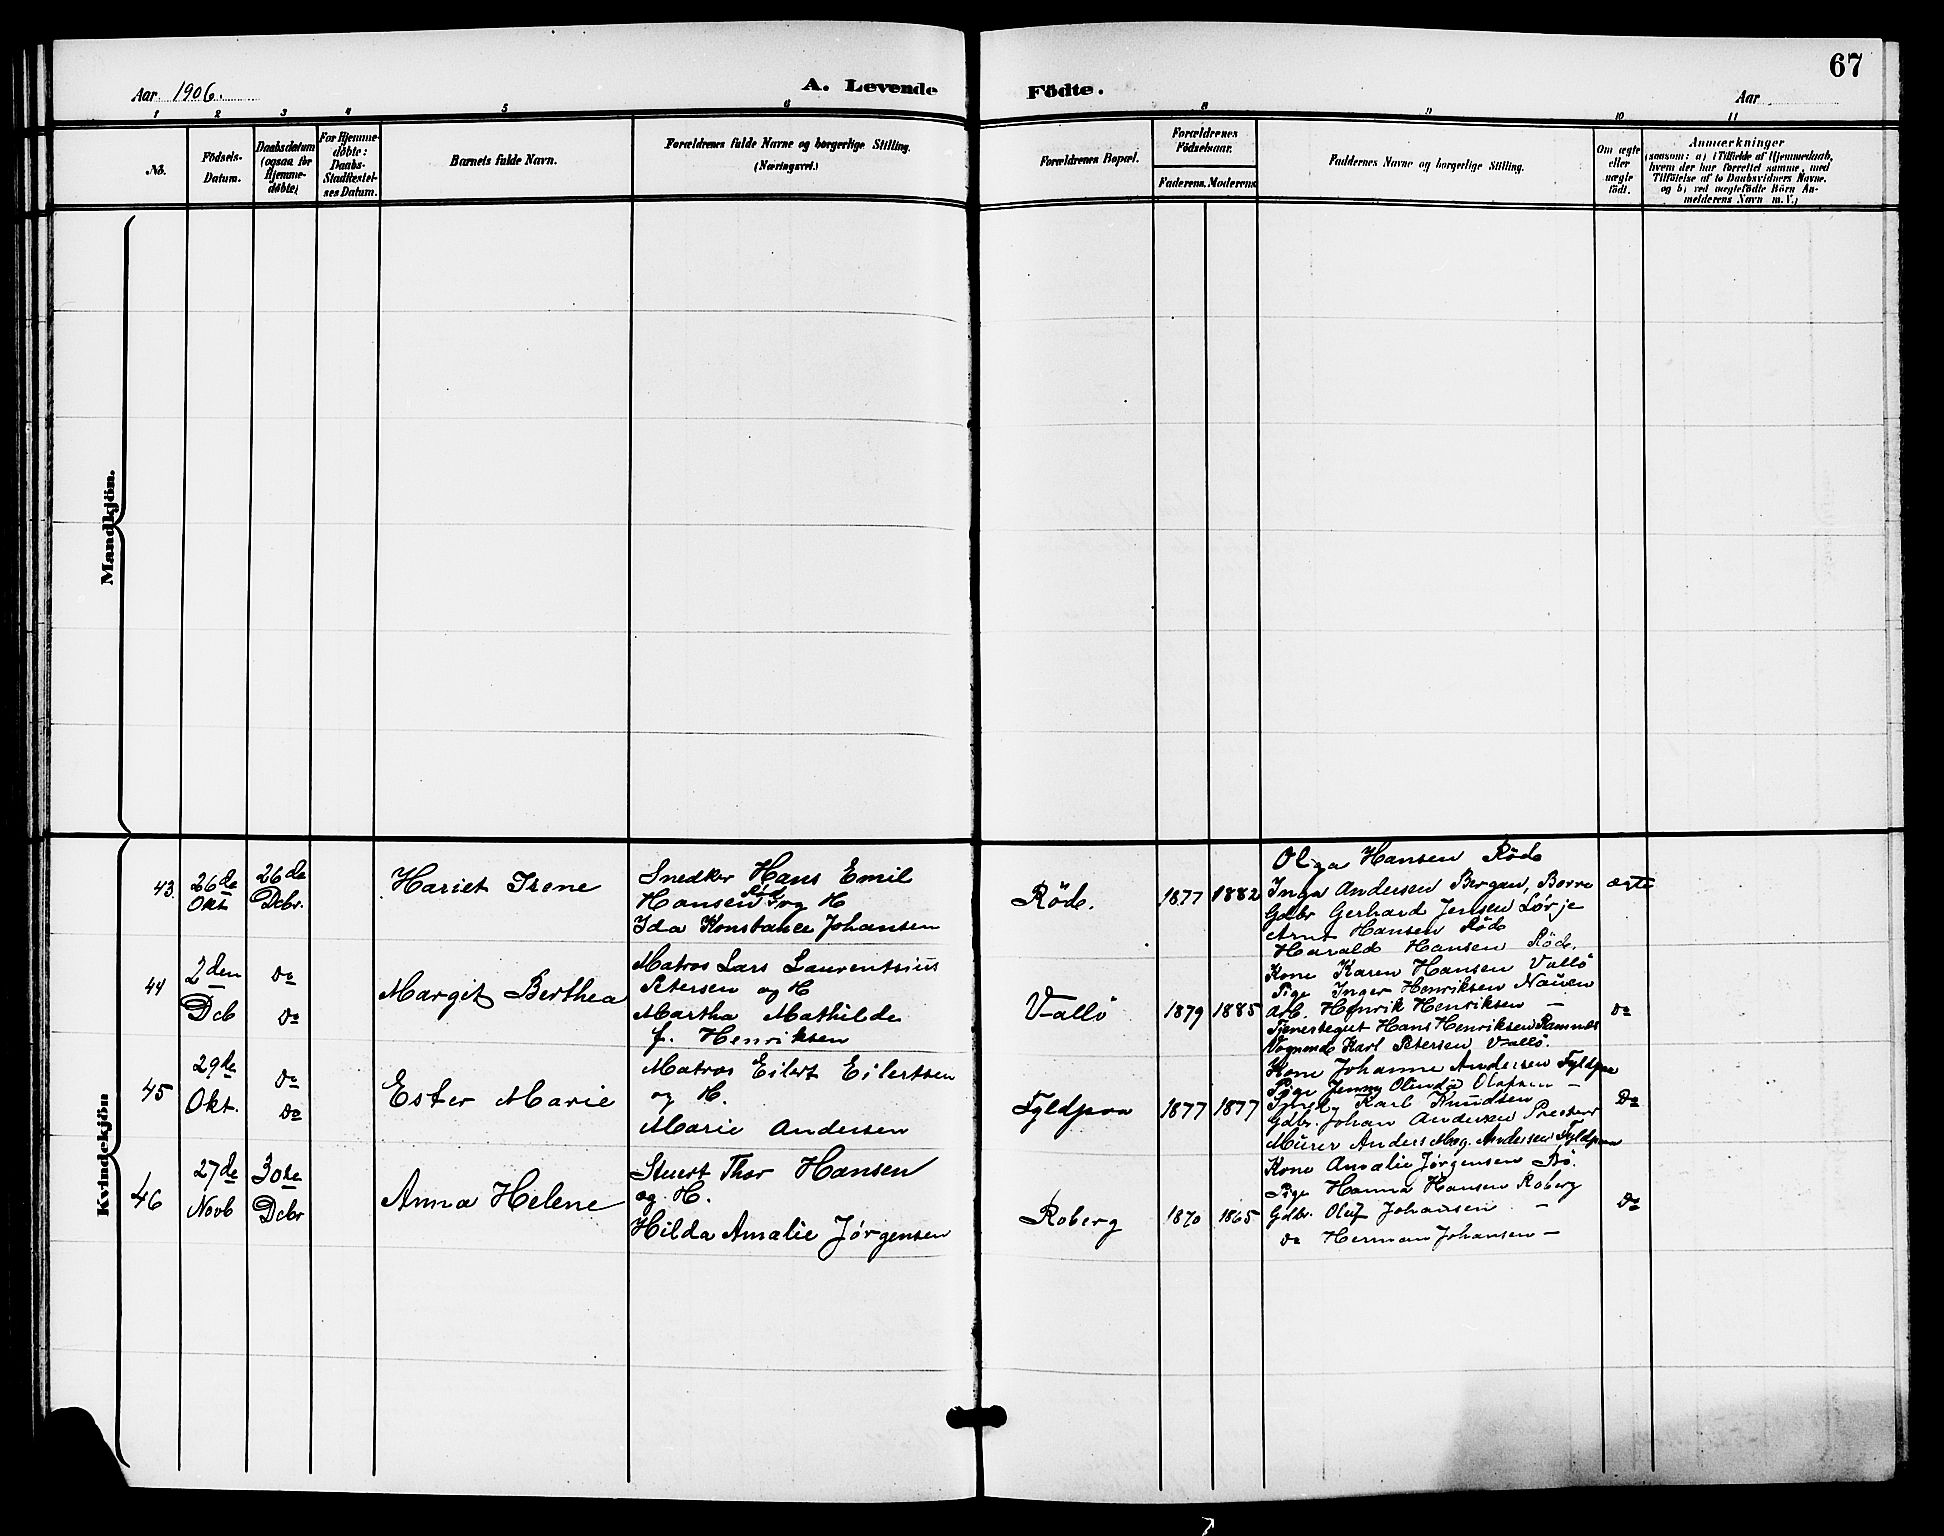 67
Aar 1906.
A. Levende Födte.
Aar
1 2 3 4 5 6 8 9 10 11
No.
Födsels-
Datum.
Daabsdatum
(ogsaa for
Hjemme-
döbte)
For Hjemme-
döbte:
Daabs-
Stadfestel-
ses Datum.
Barnets fulde Navn.
Forældrenes fulde Navne og borgerlige Stilling.
(Næringsvei.)
Forældrenes Bopæl.
Forældrenes
Födselsaar.
Faderens. Moderens
Faddernes Navne og borgerlige Stilling.
Om ægte
eller
uægte
födt.
Anmærkninger
(saasom: a) i Tilfælde af Hjemmedaab,
hvem der har forrettet samme, med
Tilföielse af to Daabsvidners Navne.
og b) ved uægtefödte Börn An-
melderens Navn m. V.)
Mandkjön.
Kvindekjön
43.
26de
Okt
26de
Dcbr.
Hariet Irene
Snedker Hans Emil
Hansen Röd og H
Ida Konstance Johansen
Röd.
1877 1882
Olga Hansen Röd
Inga Andersen Bergan, Borre
Gdbr Gerhard Jensen Lørje
Arnt Hansen Röd
Harald Hansen Röd.
ægte
44
2den
Dcb
do
do
Margit Berthea
Matros Lars Laurentsius
Petersen og H
Martha Mathilde
f. Henriksen
Vallö
1879 1885
Kone Karen Hansen Vallö
Pige Inger Henriksen Nauen
Arb. Henrik Henriksen —
Tjenestegut Hans Henriksen Ramnes
Vognmd. Karl Petersen Vallö.
do
45
29de
Okt.
do
do
Ester Marie
Matros Eilert Eilertsen
og H.
Marie Andersen
Fyldpaa
1877 1877
Kone Johanne Andersen Fyldpaa
Pige Jenny Olinda Olafsen —
Karl Knudsen
Gdbr. Johan Andersen
Murer Anders Mag. Andersen Fyldpaa
Do
46
27de
Novb
30te
Dcbr
Anna Helene
Stuert Thor Hansen
og H.
Hilda Amalie Jørgensen
Roberg
1870 1865
Kone Amalie Jørgensen Bø.
Pige Hanna Hansen Roberg
Gdbr. Oluf Johansen —
do Herman Johansen —
Do